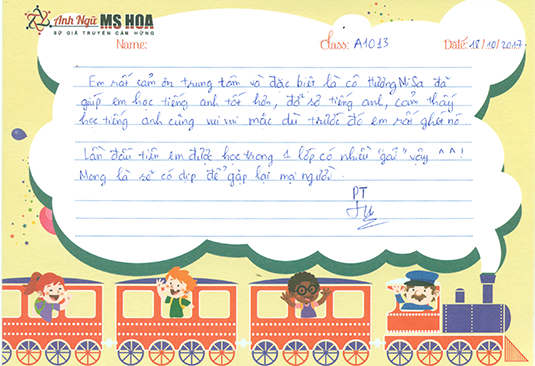 Anh Ngữ MS HOA
SỨ GIẢ TRUYỀN CẢM HỨNG
Name: Class: A1013 Date: 18/10/2017
Em rất cảm ơn trung tâm và đặc biệt là cô Hương MiSa đã
giúp em học tiếng anh tốt hơn, đỡ sợ tiếng anh, cảm thấy
học tiếng anh cũng vui vui mặc dù trước đó em rất ghét nó
Lần đầu tiên em được học trong 1 lớp có nhiều "gái" vậy ^^!
Mong là sẽ có dịp để gặp lại mọi người.
PT